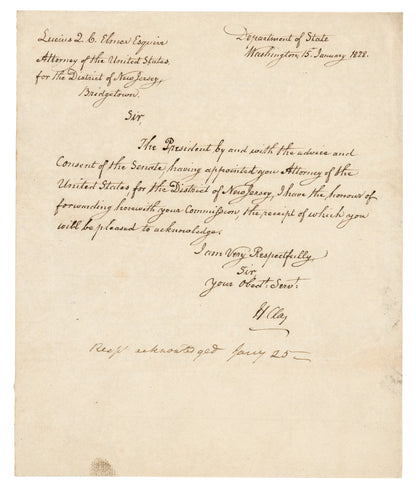 Lucius Q. C. Elmer Esquire
Attorney of the United States
for the District of New Jersey,
Bridgetown.
Department of State
Washington, 15 January 1828.
Sir
The President by and with the advice and
Consent of the Senate, having appointed you Attorney of the
United States for the District of New Jersey, I have the honour of
forwarding herewith your Commission, the receipt of which you
will be pleased to acknowledge.
I am Very Respectfully
Sir,
Your Obedt. Servt.
H Clay
Recpt acknowledged Jany 25